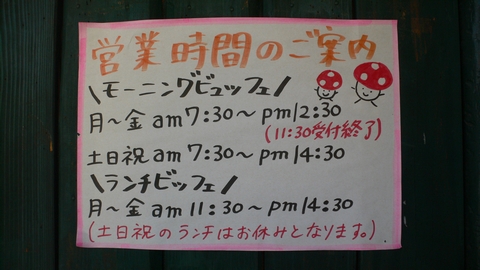 営業時間のご案内
\モーニングビュッフェ/
月～金 am7:30～pm12:30
(11:30受付終了)
土日祝 am7:30～pm14:30
\ランチビッフェ/
月～金 am11:30～pm14:30
(土日祝のランチはお休みとなります。)